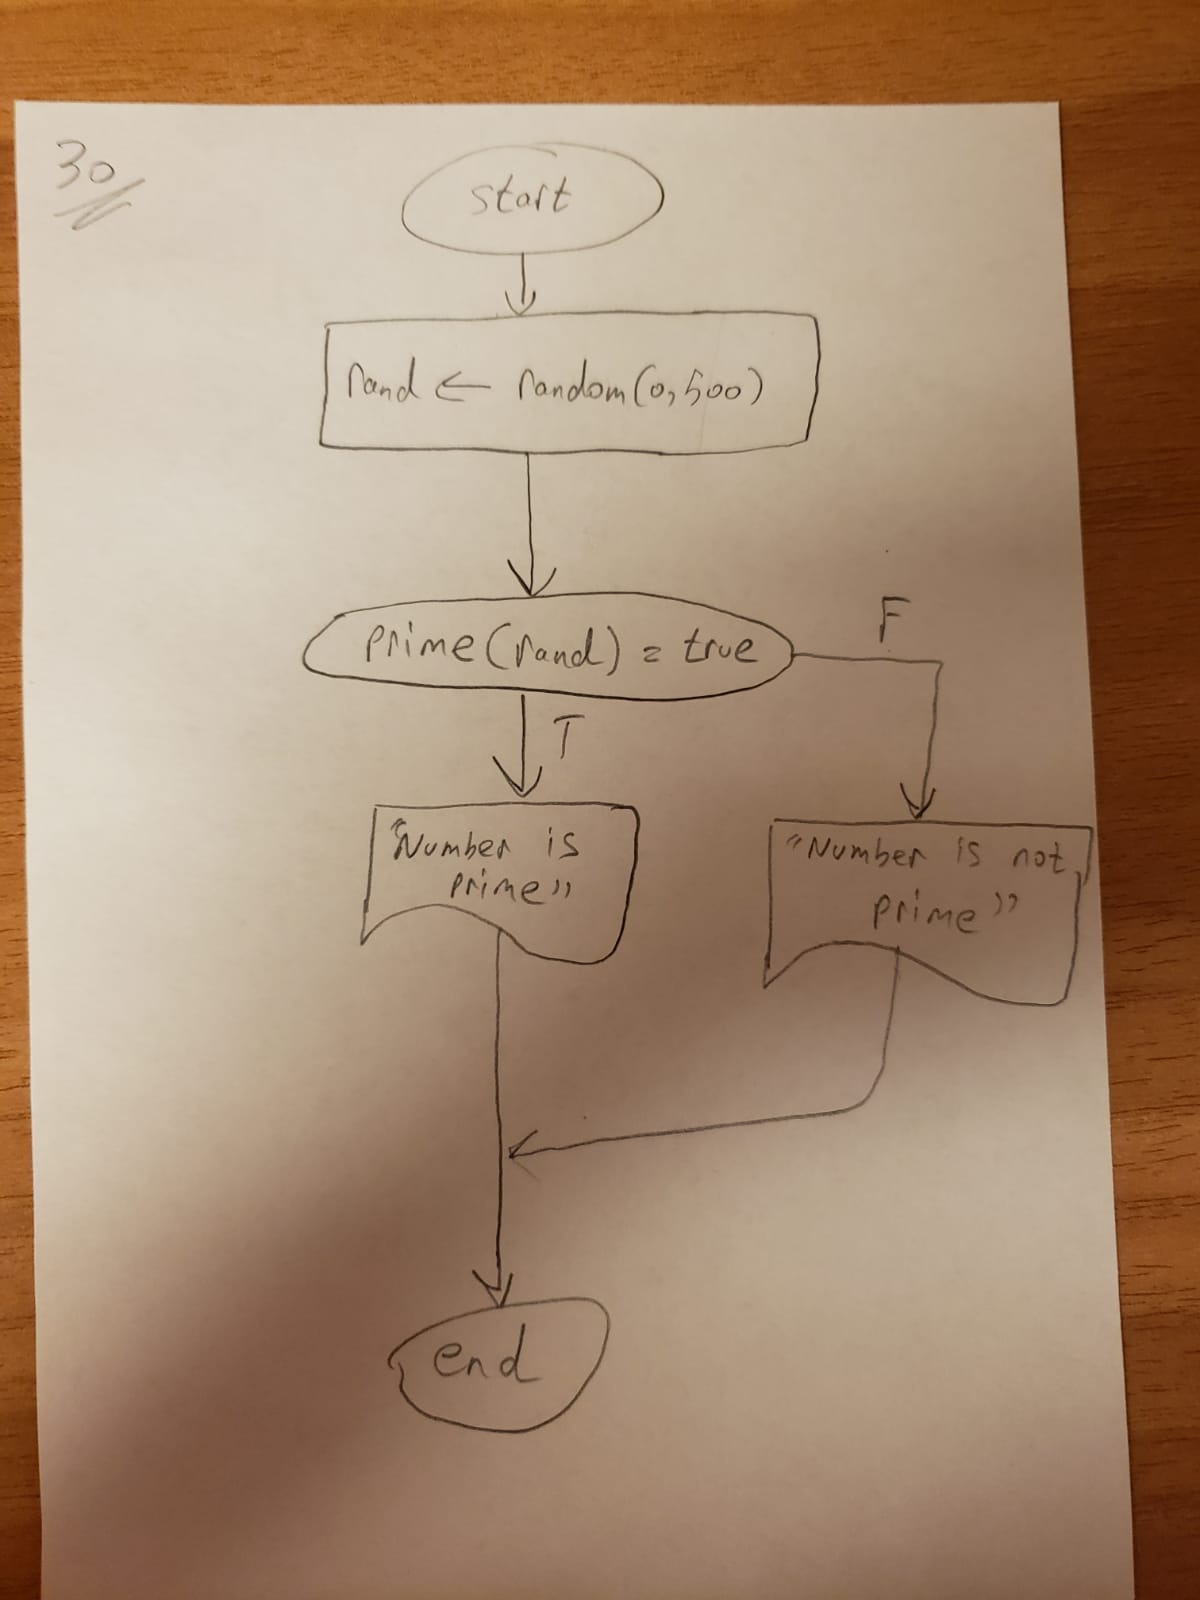 30
start
rand ← random(0,500)
prime(rand) = true
F
T
"Number is
prime"
"Number is not
prime"
end